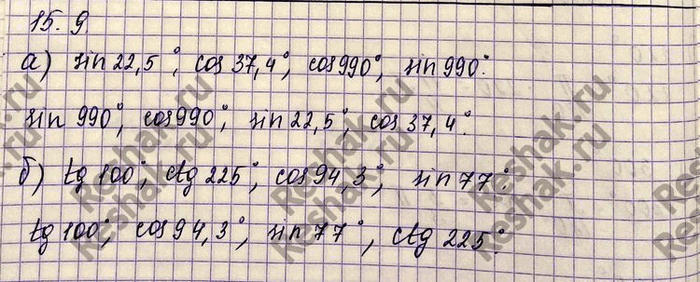 15.9
а) sin 22,5°, cos 37,4°, cos 990°, sin 990°.
sin 990°, cos 990°, sin 22,5°, cos 37,4°.
б) tg 100°, ctg 225°, cos 94,3°, sin 77°.
tg 100°, cos 94,3°, sin 77°, ctg 225°.
Reshak.ru
Reshak.ru
Reshak.ru
Reshak.ru
Reshak.ru
Reshak.ru
Reshak.ru
Reshak.ru